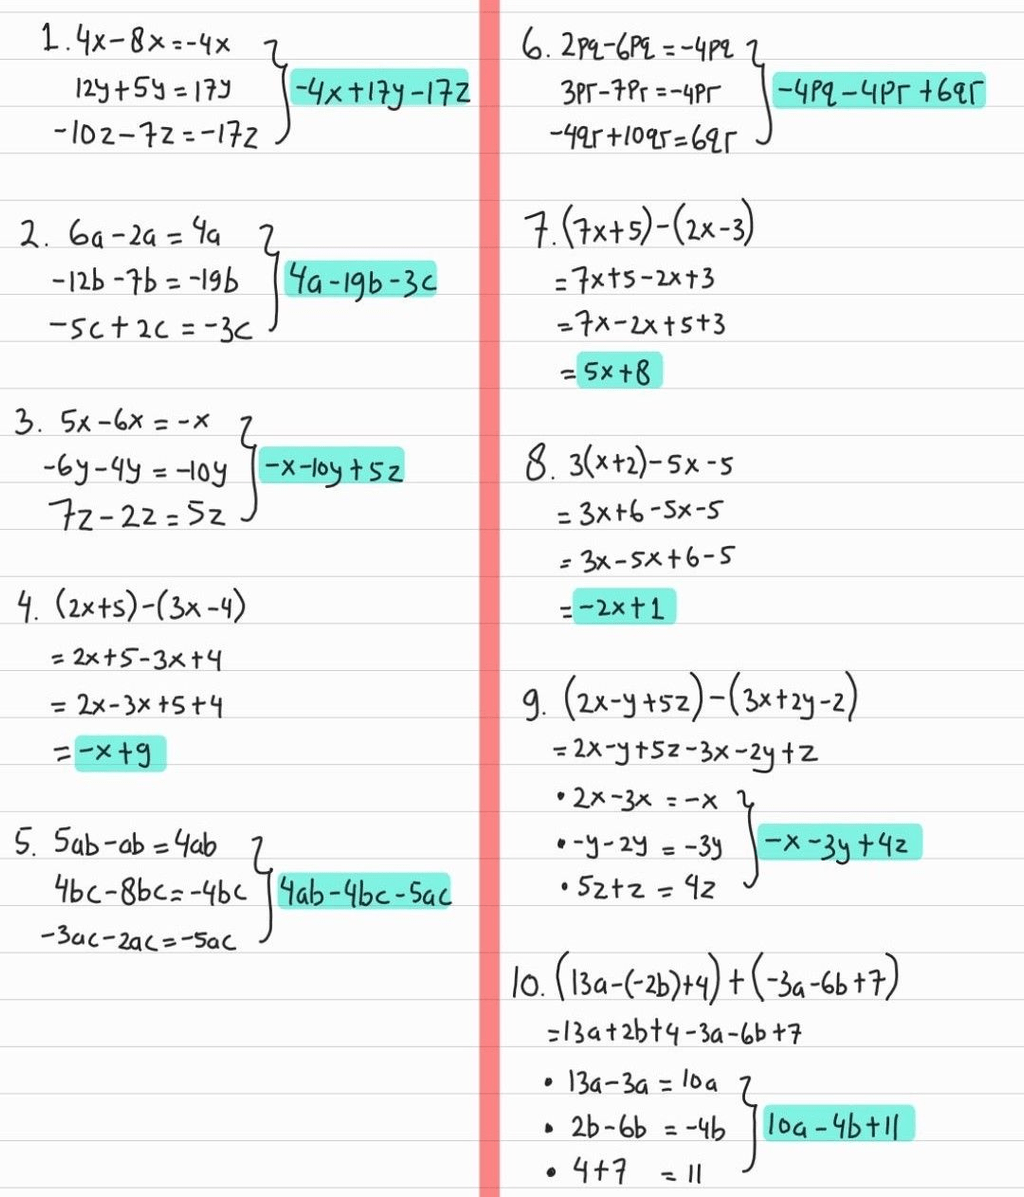 1. 4x-8x=-4x
12y+5y=17y
-10z-7z=-17z
-4x+17y-17z
2. 6a-2a=4a
-12b-7b=-19b
-5c+2c=-3c
4a-19b-3c
3. 5x-6x=-x
-6y-4y=-10y
7z-2z=5z
-x-10y+5z
4. (2x+5)-(3x-4)
=2x+5-3x+4
=2x-3x+5+4
=-x+9
5. 5ab-ab=4ab
4bc-8bc=-4bc
-3ac-2ac=-5ac
4ab-4bc-5ac
6. 2pq-6pq=-4pq
3pr-7pr=-4pr
-4qr+10qr=6qr
-4pq-4pr+6qr
7. (7x+5)-(2x-3)
=7x+5-2x+3
=7x-2x+5+3
=5x+8
8. 3(x+2)-5x-5
=3x+6-5x-5
=3x-5x+6-5
=-2x+1
9. (2x-y+5z)-(3x+2y-z)
=2x-y+5z-3x-2y+z
• 2x-3x=-x
• -y-2y=-3y
• 5z+z=4z
-x-3y+4z
10. (13a-(-2b)+4)+(-3a-6b+7)
=13a+2b+4-3a-6b+7
• 13a-3a=10a
• 2b-6b=-4b
• 4+7=11
10a-4b+11